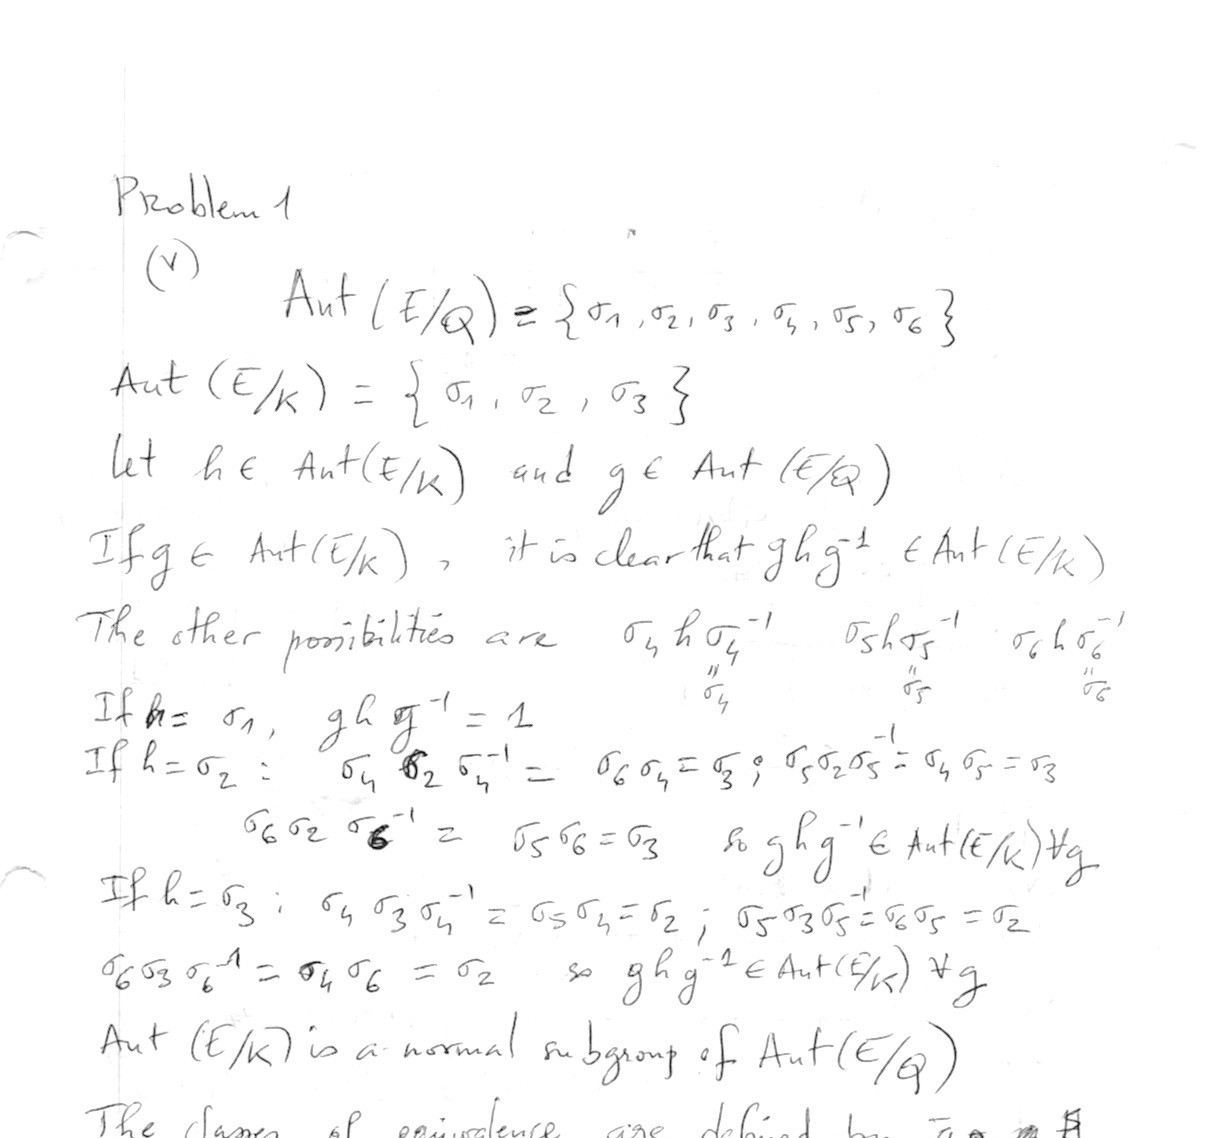 Problem 1
(v)
Aut (E/Q) = {σ1, σ2, σ3, σ4, σ5, σ6}
Aut (E/K) = {σ1, σ2, σ3}
Let h ∈ Aut(E/K) and g ∈ Aut (E/Q)
If g ∈ Aut(E/K), it is clear that g h g⁻¹ ∈ Aut (E/K)
The other possibilities are σ4 h σ4⁻¹ σ5 h σ5⁻¹ σ6 h σ6⁻¹
" σ4 " σ5 " σ6
If h = σ1, g h g⁻¹ = 1
If h = σ2 : σ4 σ2 σ4⁻¹ = σ6 σ4 = σ3 ; σ5 σ2 σ5⁻¹ = σ4 σ5 = σ3
σ6 σ2 σ6⁻¹ = σ5 σ6 = σ3 so g h g⁻¹ ∈ Aut(E/K) ∀g
If h = σ3 : σ4 σ3 σ4⁻¹ = σ5 σ4 = σ2 ; σ5 σ3 σ5⁻¹ = σ6 σ5 = σ2
σ6 σ3 σ6⁻¹ = σ4 σ6 = σ2 so g h g⁻¹ ∈ Aut(E/K) ∀g
Aut (E/K) is a normal subgroup of Aut(E/Q)
The classes of equivalence are defined by